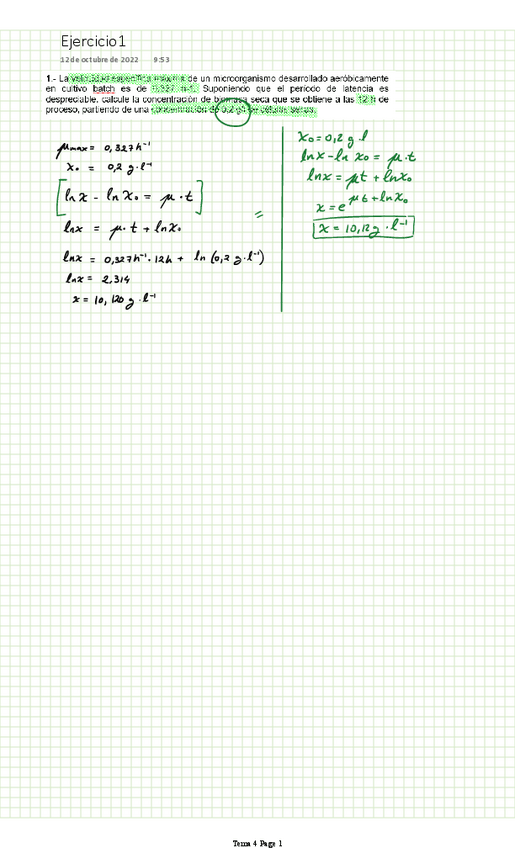 Ejercicio1
12 de octubre de 2022 9:53
1.- La velocidad específica máxima de un microorganismo desarrollado aeróbicamente
en cultivo batch es de 0,327 h-1. Suponiendo que el periodo de latencia es
despreciable, calcule la concentración de biomasa seca que se obtiene a las 12 h de
proceso, partiendo de una concentración de 0,2 g/l de células secas.
μmax = 0,327 h⁻¹
x₀ = 0,2 g·l⁻¹
[ln x - ln x₀ = μ·t]
lnx = μ·t + lnx₀
lnx = 0,327h⁻¹·12h + ln (0,2 g·l⁻¹)
lnx = 2,314
x = 10,120 g·l⁻¹
=
x₀ = 0,2 g·l
lnx - ln x₀ = μ·t
lnx = μt + lnx₀
x = e^μt + lnx₀
x = 10,12 g·l⁻¹
Tema 4 Page 1